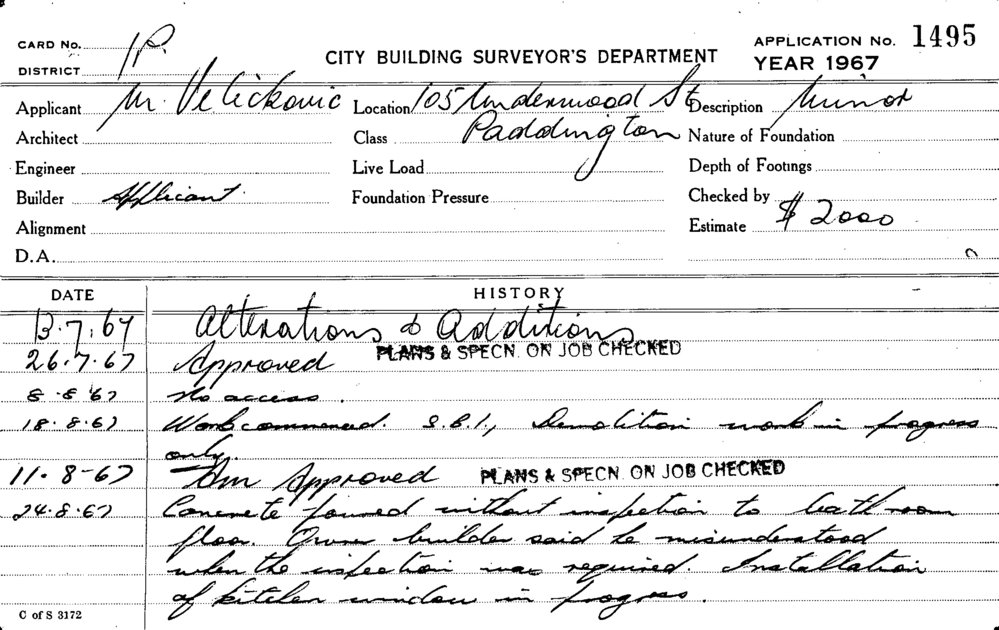 CARD No. 1P.
DISTRICT
CITY BUILDING SURVEYOR'S DEPARTMENT
APPLICATION No. 1495
YEAR 1967
Applicant M. Velickovic Location 105 Underwood St Description Minor
Architect Class Paddington Nature of Foundation
Engineer Live Load Depth of Footings
Builder Applicant Foundation Pressure Checked by
Alignment Estimate $2000
D.A.
DATE HISTORY
13.7.67 Alterations & Additions
26.7.67 Approved PLANS & SPECN. ON JOB CHECKED
8.8.67 No access.
18.8.67 Work commenced. S.B.I., Demolition work in progress
only.
11.8-67 Am Approved PLANS & SPECN. ON JOB CHECKED
24.8.67 Concrete poured without inspection to bath room
floor. Owner builder said he misunderstood
when the inspection was required. Installation
of kitchen window in progress.
C of S 3172